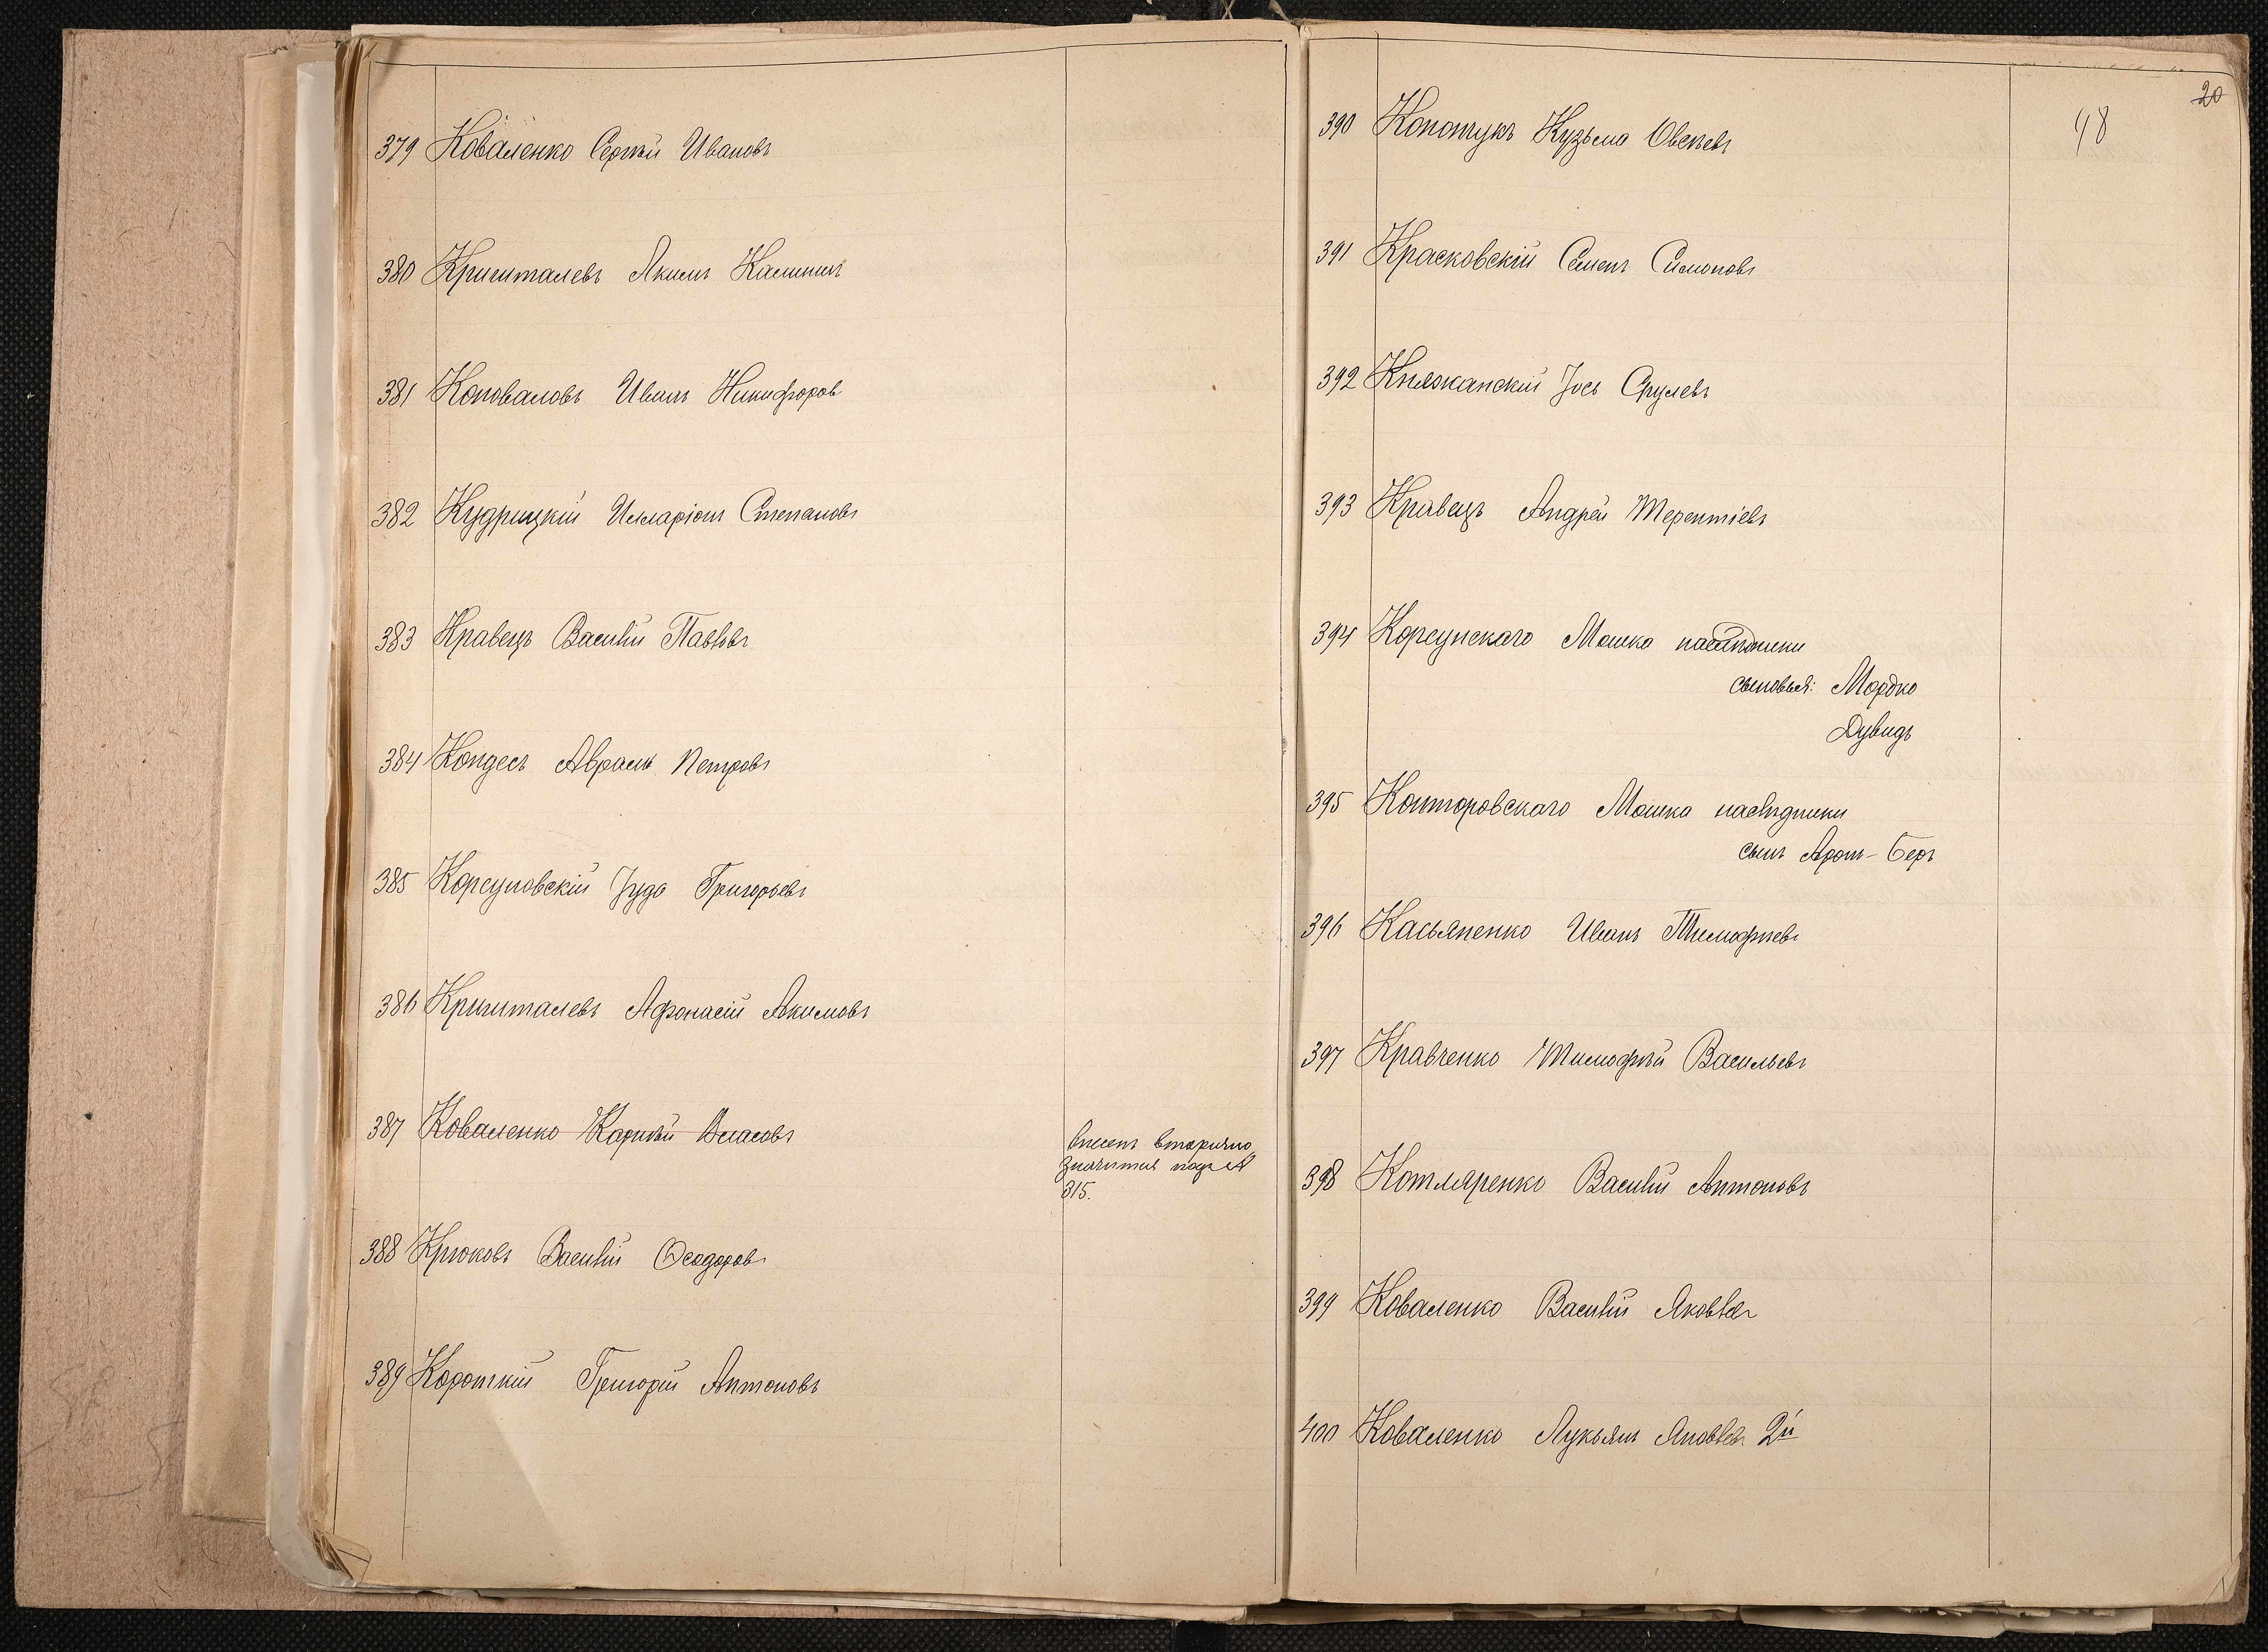 379 Коваленко Сергѣй Ивановъ
380 Кришталевъ Якимъ Калининъ
381 Коноваловъ Иванъ Никифоров
382 Кудрицкій Илларіонъ Степановъ
383 Кравецъ Василій Павловъ
384 Кондесъ Авраамъ Петровъ
385 Корсуновскій Іуда Григорьевъ
386 Кришталевъ Афонасій Акимовъ
387 Коваленко Карпѣй Власовъ
внесенъ вторично,
значится подъ №
315.
388 Крюковъ Василій Ѳеодоровъ
389 Короткій Григорій Антоновъ
20
48
390 Конончукъ Кузьма Овсѣевъ
391 Красковскій Семенъ Симоновъ
392 Княжанскій Іось Срулевъ
393 Кравецъ Андрей Терентіевъ
394 Корсунскаго Мошка наслѣдники
сыновья: Мордко
Дувидъ
395 Конторовскаго Мошка наслѣдники
сынъ Аронъ-Беръ
396 Касьяненко Иванъ Тимофѣевъ
397 Кравченко Тимофѣй Васильевъ
398 Котляренко Василій Антоновъ
399 Коваленко Василій Яковлевъ
400 Коваленко Лукьянъ Яковлевъ 2й